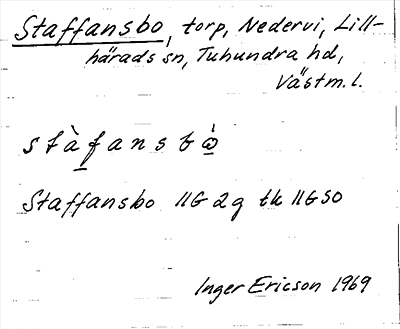 Staffansbo, torp, Nedervi, Lill-
härads sn, Tuhundra hd,
Västm. l.
stàfansbò̲
Staffansbo 11G 2g tk 11GSO
Inger Ericson 1969